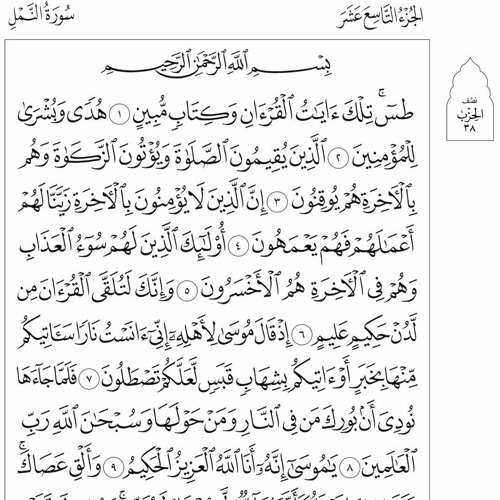 الجُزْءُ التَّاسِعَ عَشَرَ
سُورَةُ النَّمْلِ
بِسْمِ اللَّهِ الرَّحْمَٰنِ الرَّحِيمِ
طسٓۚ تِلْكَ ءَايَٰتُ ٱلْقُرْءَانِ وَكِتَابٍ مُّبِينٍ ١ هُدًى وَبُشْرَىٰ
لِلْمُؤْمِنِينَ ٢ ٱلَّذِينَ يُقِيمُونَ ٱلصَّلَوٰةَ وَيُؤْتُونَ ٱلزَّكَوٰةَ وَهُم
بِٱلْأٓخِرَةِ هُمْ يُوقِنُونَ ٣ إِنَّ ٱلَّذِينَ لَا يُؤْمِنُونَ بِٱلْأٓخِرَةِ زَيَّنَّا لَهُمْ
أَعْمَٰلَهُمْ فَهُمْ يَعْمَهُونَ ٤ أُو۟لَٰٓئِكَ ٱلَّذِينَ لَهُمْ سُوٓءُ ٱلْعَذَابِ
وَهُمْ فِى ٱلْأٓخِرَةِ هُمُ ٱلْأَخْسَرُونَ ٥ وَإِنَّكَ لَتُلَقَّى ٱلْقُرْءَانَ مِن
لَّدُنْ حَكِيمٍ عَلِيمٍ ٦ إِذْ قَالَ مُوسَىٰ لِأَهْلِهِۦٓ إِنِّىٓ ءَانَسْتُ نَارًا سَـَٔاتِيكُم
مِّنْهَا بِخَبَرٍ أَوْ ءَاتِيكُم بِشِهَابٍ قَبَسٍ لَّعَلَّكُمْ تَصْطَلُونَ ٧ فَلَمَّا جَآءَهَا
نُودِىَ أَنۢ بُورِكَ مَن فِى ٱلنَّارِ وَمَنْ حَوْلَهَا وَسُبْحَٰنَ ٱللَّهِ رَبِّ
ٱلْعَٰلَمِينَ ٨ يَٰمُوسَىٰٓ إِنَّهُۥٓ أَنَا ٱللَّهُ ٱلْعَزِيزُ ٱلْحَكِيمُ ٩ وَأَلْقِ عَصَاكَۚ
نصف
الحزب
٣٨